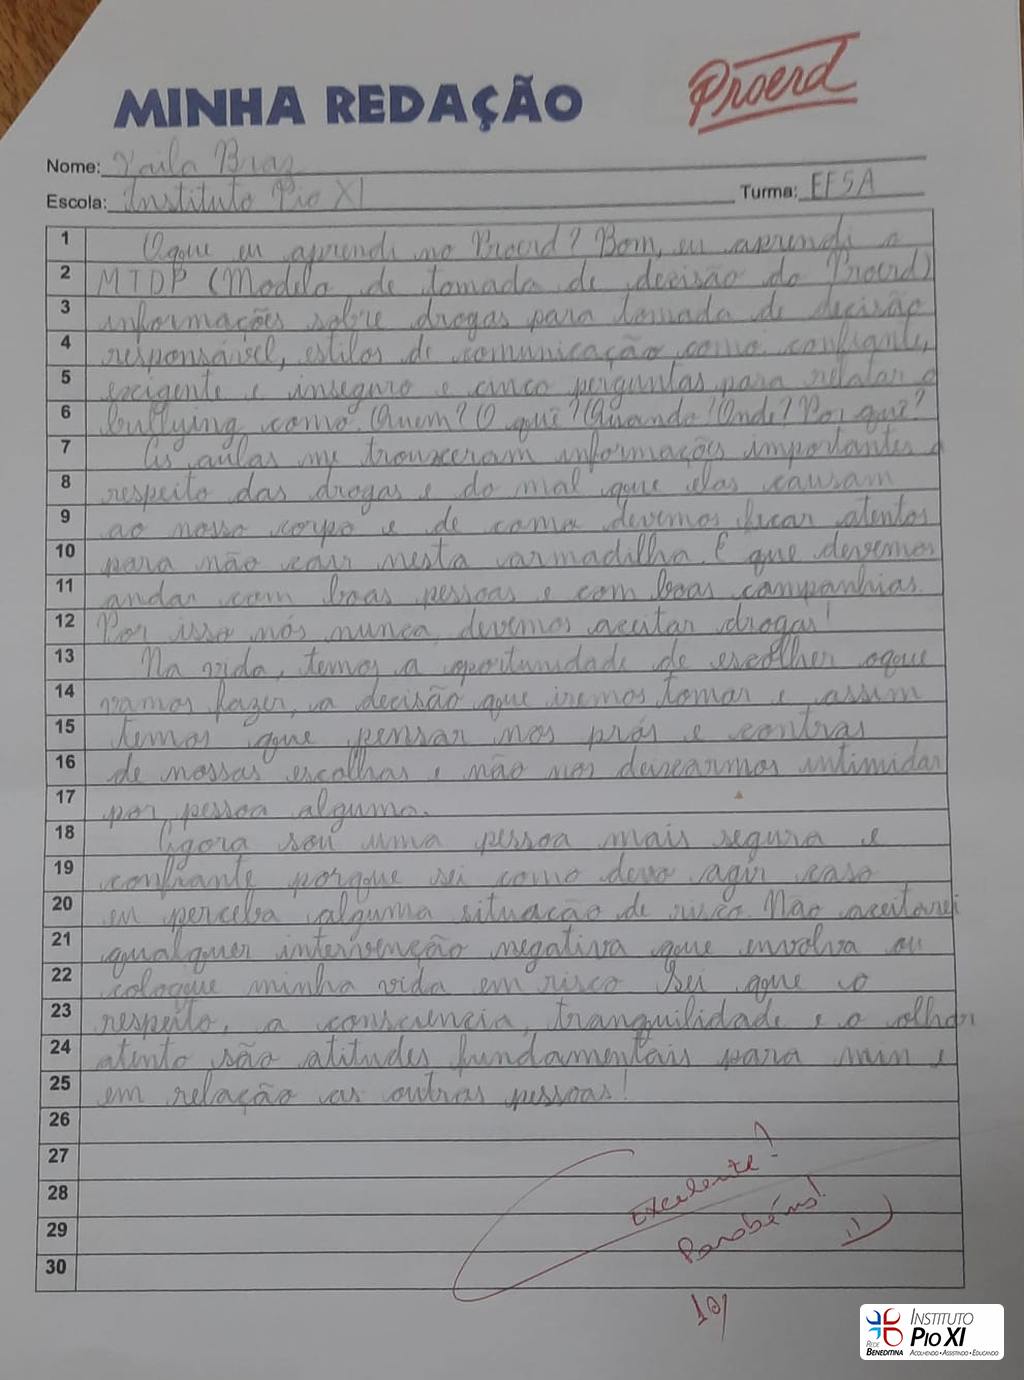 MINHA REDAÇÃO
Proerd
Nome: Braz
Escola: Instituto Pio XI Turma: EF5A
1 Oque eu aprendi no Proerd? Bom, eu aprendi o
2 MTDP (Modelo de tomada de decisão do Proerd)
3 informações sobre drogas para tomada de decisão
4 responsável, estilos de comunicação como confiante,
5 exigente e inseguro e cinco perguntas para relatar o
6 bullying como: Quem? O quê? Quando? Onde? Por quê?
7 As aulas me trouxeram informações importantes a
8 respeito das drogas e do mal que elas causam
9 ao nosso corpo e de como devemos ficar atentos
10 para não cair nesta armadilha. E que devemos
11 andar com boas pessoas e com boas companhias.
12 Por isso nós nunca devemos aceitar drogas!
13 Na vida, temos a oportunidade de escolher oque
14 vamos fazer, a decisão que iremos tomar e assim
15 temos que pensar nos prós e contras
16 de nossas escolhas e não nos deixarmos intimidar
17 por pessoa alguma.
18 Agora sou uma pessoa mais segura e
19 confiante porque sei como devo agir caso
20 eu perceba alguma situação de risco. Não aceitarei
21 qualquer intervenção negativa que envolva ou
22 coloque minha vida em risco Sei que o
23 respeito, a consciencia, tranquilidade e o olhar
24 atento são atitudes fundamentais para mim e
25 em relação as outras pessoas!
26
27
28
29
30
Excelente!
Parabéns!
10/
INSTITUTO
PIO XI
REDE
BENEDITINA
ACOLHENDO • ASSISTINDO • EDUCANDO